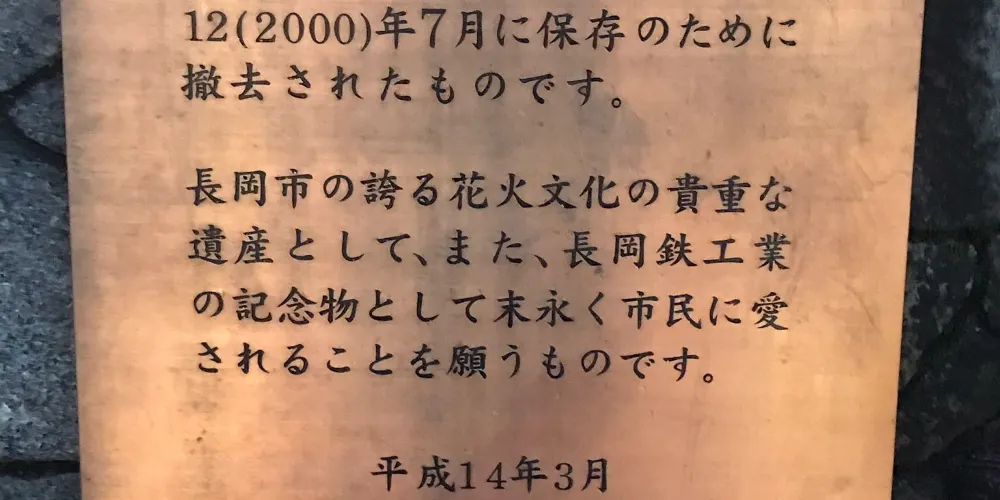 12(2000)年7月に保存のために
撤去されたものです。
長岡市の誇る花火文化の貴重な
遺産として、また、長岡鉄工業
の記念物として末永く市民に愛
されることを願うものです。
平成14年3月